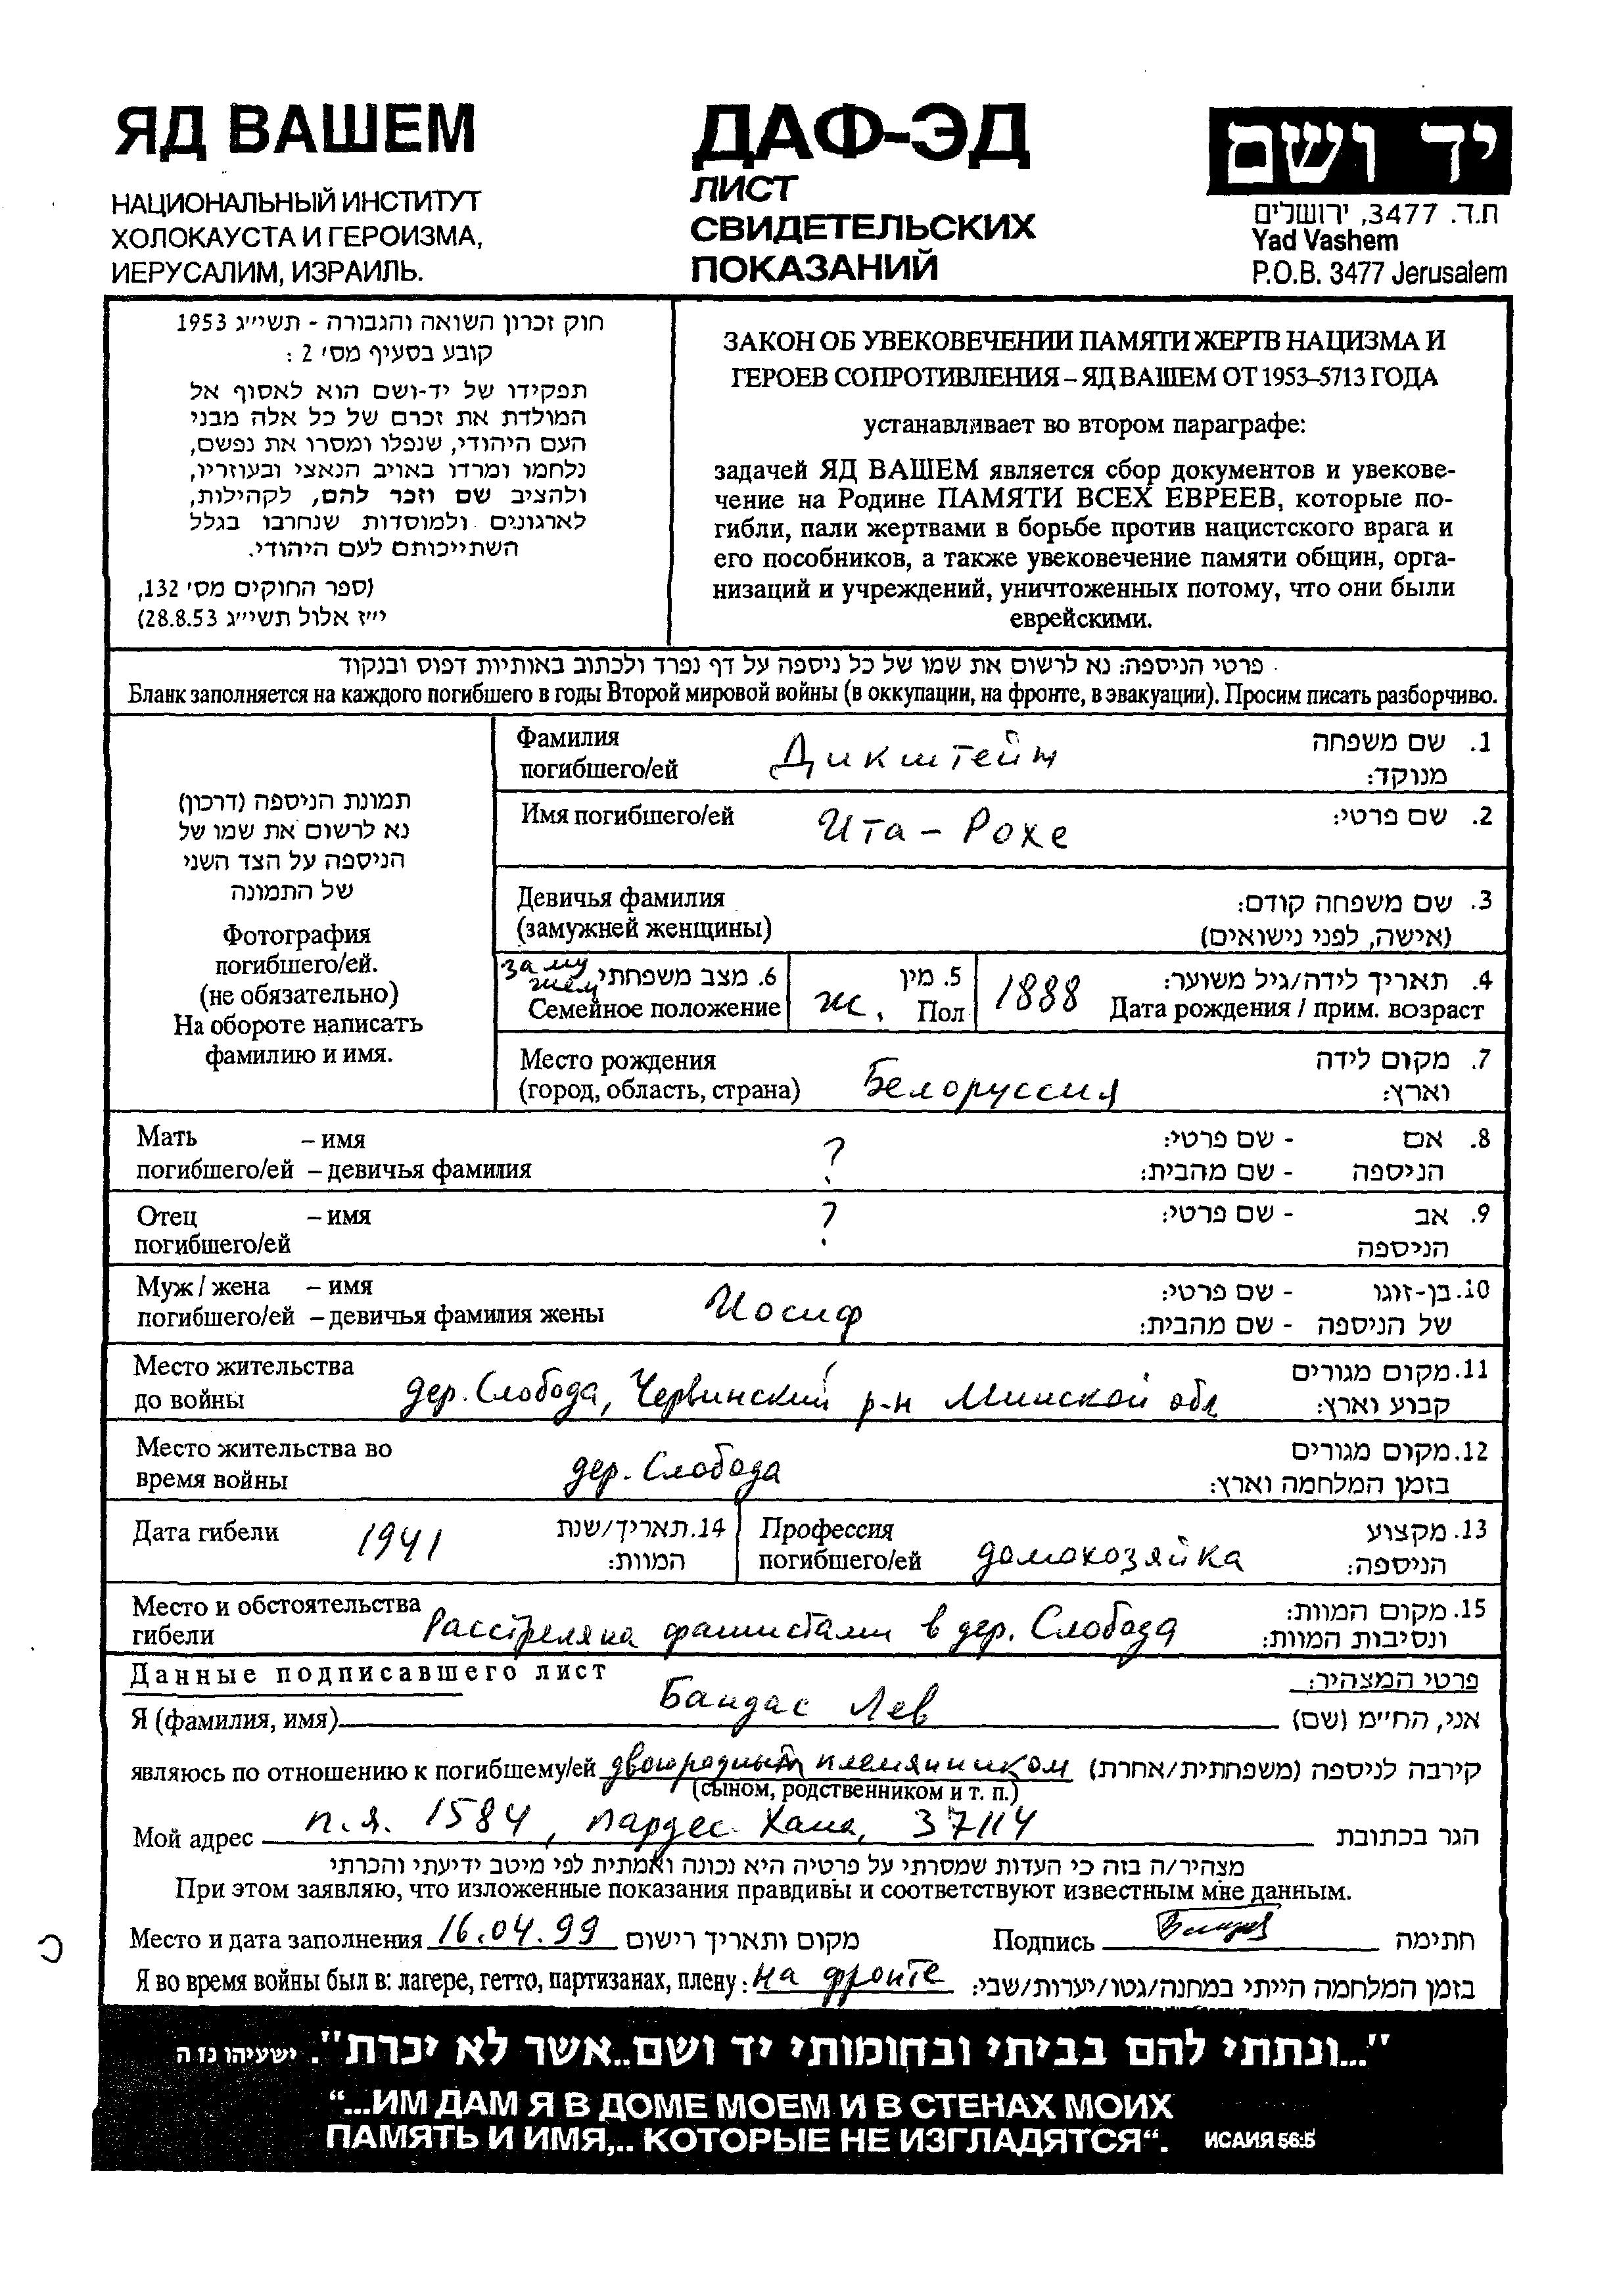 ЯД ВАШЕМ
НАЦИОНАЛЬНЫЙ ИНСТИТУТ
ХОЛОКАУСТА И ГЕРОИЗМА,
ИЕРУСАЛИМ, ИЗРАИЛЬ.
ДАФ-ЭД
ЛИСТ
СВИДЕТЕЛЬСКИХ
ПОКАЗАНИЙ
יד ושם
ת.ד. 3477, ירושלים
Yad Vashem
P.O.B. 3477 Jerusalem
חוק זכרון השואה והגבורה - תשי״ג 1953
קובע בסעיף מס׳ 2 :
תפקידו של יד-ושם הוא לאסוף אל
המולדת את זכרם של כל אלה מבני
העם היהודי, שנפלו ומסרו את נפשם,
נלחמו ומרדו באויב הנאצי ובעוזריו,
ולהציב שם וזכר להם, לקהילות,
לארגונים ולמוסדות שנחרבו בגלל
השתייכותם לעם היהודי.
(ספר החוקים מס׳ 132,
י״ז אלול תשי״ג 28.8.53)
ЗАКОН ОБ УВЕКОВЕЧЕНИИ ПАМЯТИ ЖЕРТВ НАЦИЗМА И
ГЕРОЕВ СОПРОТИВЛЕНИЯ – ЯД ВАШЕМ ОТ 1953–5713 ГОДА
устанавливает во втором параграфе:
задачей ЯД ВАШЕМ является сбор документов и увекове-
чение на Родине ПАМЯТИ ВСЕХ ЕВРЕЕВ, которые по-
гибли, пали жертвами в борьбе против нацистского врага и
его пособников, а также увековечение памяти общин, орга-
низаций и учреждений, уничтоженных потому, что они были
еврейскими.
פרטי הניספה: נא לרשום את שמו של כל ניספה על דף נפרד ולכתוב באותיות דפוס ובנקוד
Бланк заполняется на каждого погибшего в годы Второй мировой войны (в оккупации, на фронте, в эвакуации). Просим писать разборчиво.
תמונת הניספה (דרכון)
נא לרשום את שמו של
הניספה על הצד השני
של התמונה
Фотография
погибшего/ей.
(не обязательно)
На обороте написать
фамилию и имя.
Фамилия
погибшего/ей Дикштейн 1. שם משפחה
מנוקד:
Имя погибшего/ей Ита-Рохе 2. שם פרטי:
Девичья фамилия 3. שם משפחה קודם:
(замужней женщины) (אישה, לפני נישואים)
замужем 6. מצב משפחתי
Семейное положение
ж. 5. מין
Пол
1888 4. תאריך לידה/גיל משוער:
Дата рождения / прим. возраст
Место рождения 7. מקום לידה
(город, область, страна) Белоруссия וארץ:
Мать – имя ? 8. אם - שם פרטי:
погибшего/ей – девичья фамилия הניספה - שם מהבית:
Отец – имя ? 9. אב - שם פרטי:
погибшего/ей הניספה
Муж / жена – имя Иосиф 10. בן-זוגו - שם פרטי:
погибшего/ей – девичья фамилия жены של הניספה - שם מהבית:
Место жительства 11. מקום מגורים
до войны дер. Слобода, Червинский р-н Минской обл קבוע וארץ:
Место жительства во 12. מקום מגורים
время войны дер. Слобода בזמן המלחמה וארץ:
Дата гибели 1941 14. תאריך/שנת
המוות:
Профессия 13. מקצוע
погибшего/ей домохозяйка הניספה:
Место и обстоятельства 15. מקום המוות:
гибели Расстреляна фашистами в дер. Слобода ונסיבות המוות:
Данные подписавшего лист פרטי המצהיר:
Я (фамилия, имя) Бандас Лев אני, הח״מ (שם)
являюсь по отношению к погибшему/ей двоюродным племянником קירבה לניספה (משפחתית/אחרת)
(сыном, родственником и т. п.)
Мой адрес п.я. 1584, Пардес-Хана, 37114 הגר בכתובת
מצהיר/ה בזה כי העדות שמסרתי על פרטיה היא נכונה ואמתית לפי מיטב ידיעתי והכרתי
При этом заявляю, что изложенные показания правдивы и соответствуют известным мне данным.
Место и дата заполнения 16.04.99 מקום ותאריך רישום Подпись חתימה
Я во время войны был в: лагере, гетто, партизанах, плену: на фронте בזמן המלחמה הייתי במחנה/גטו/יערות/שבי:
"...ונתתי להם בביתי ובחומותי יד ושם..אשר לא יכרת". ישעיהו נז ה
“...ИМ ДАМ Я В ДОМЕ МОЕМ И В СТЕНАХ МОИХ
ПАМЯТЬ И ИМЯ,.. КОТОРЫЕ НЕ ИЗГЛАДЯТСЯ“. ИСАИЯ 56:5